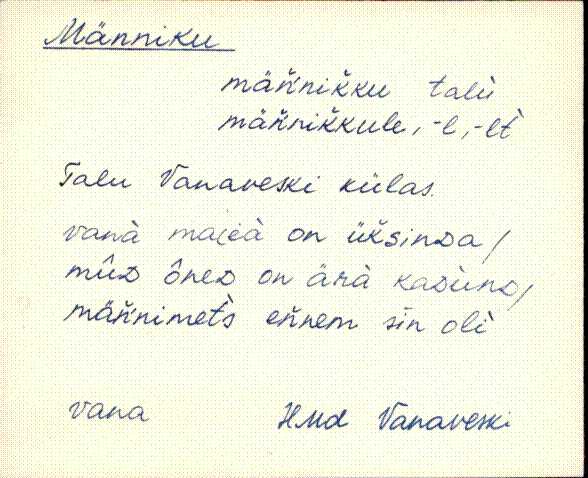 Männiku
män̆'nik̆ku talù
män̆nik̆kule, -l, -lt̀
Talu Vanaveski külas.
vanà majeà on ük̆sinᴅa /
mûᴅ ôneᴅ on ärà kaᴅùnᴅ /
män̆'nimet̀s en̆nem sīn olì
vana HMd Vanaveski